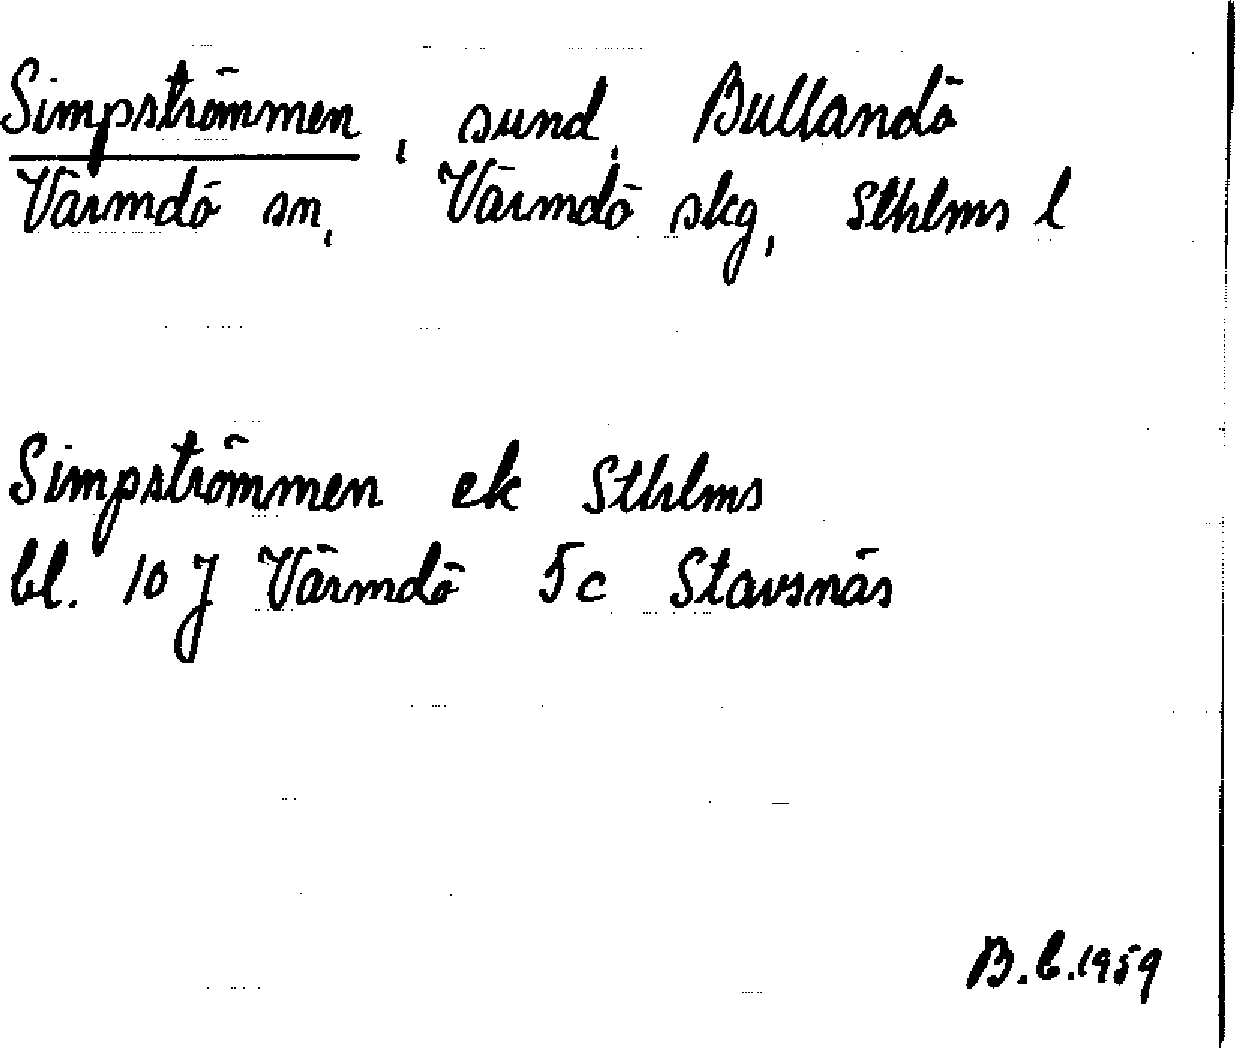 Simpströmmen, sund, Bullandö
Värmdö sn, Värmdö skg, Sthlms l
Simpströmmen ek Sthlms
bl. 10 J Värmdö 5c Stavsnäs
B.C.1959